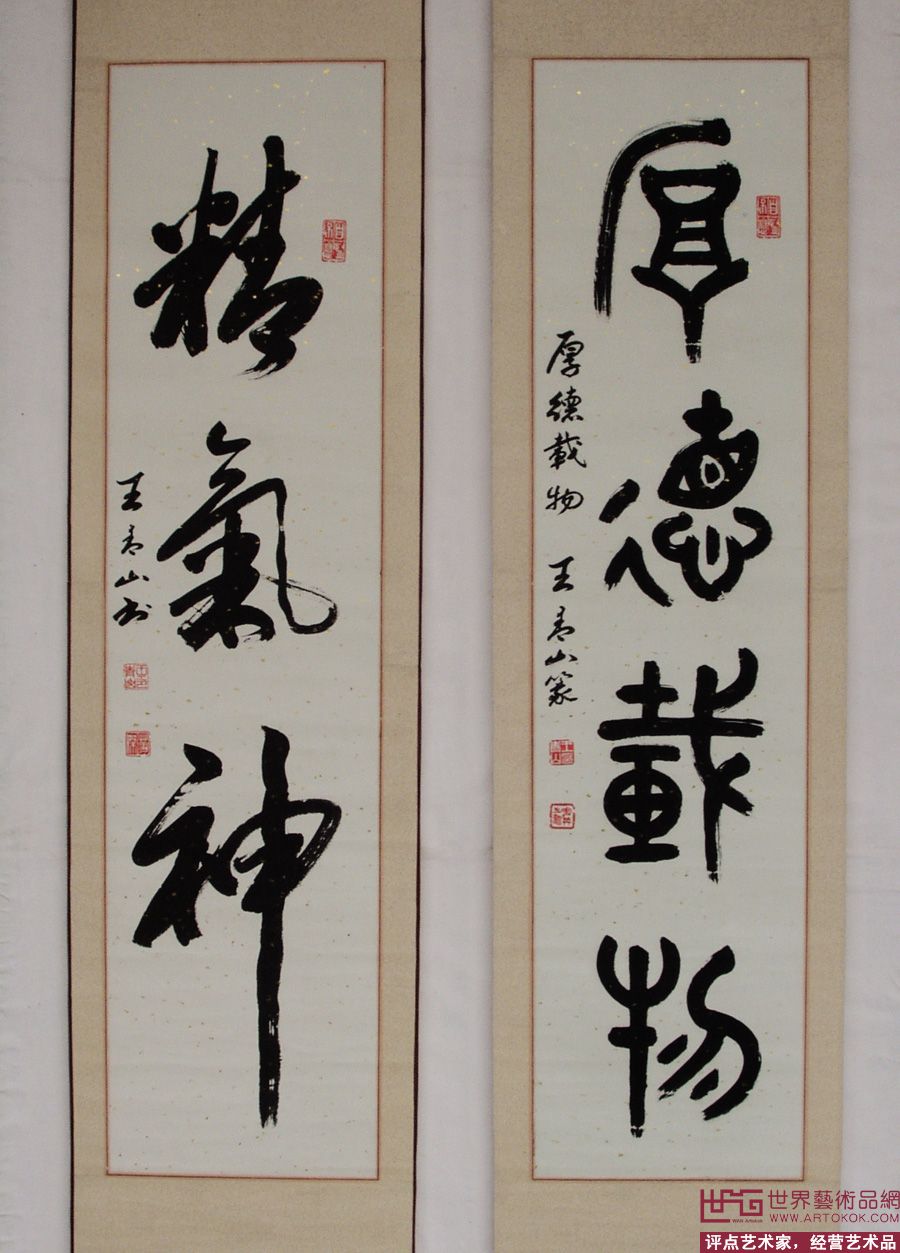 厚德載物
厚德載物 王青山篆
精氣神
王青山书
世界藝術品網
WWW.ARTOKOK.COM
评点艺术家，经营艺术品